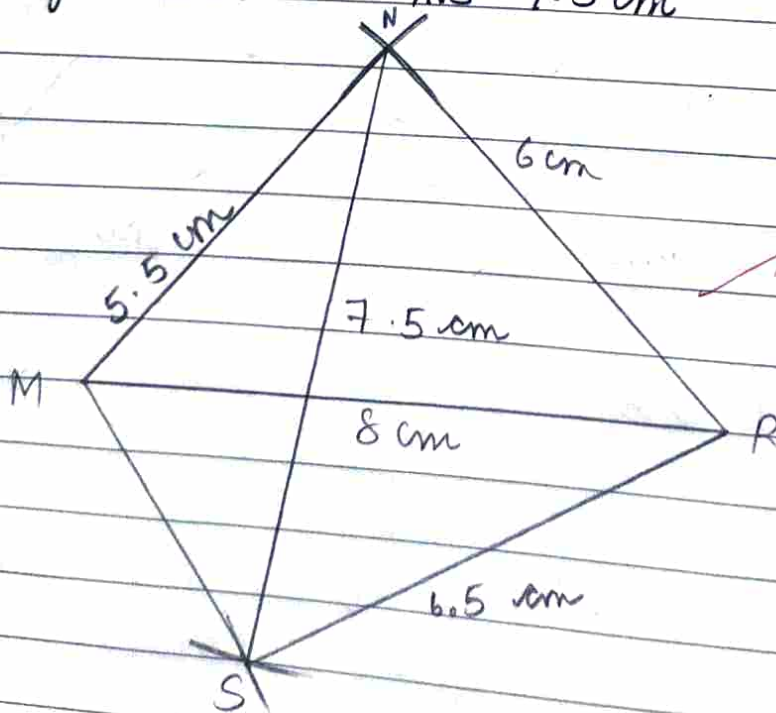 N
6 cm
5.5 cm
7.5 cm
M
8 cm
R
6.5 cm
S